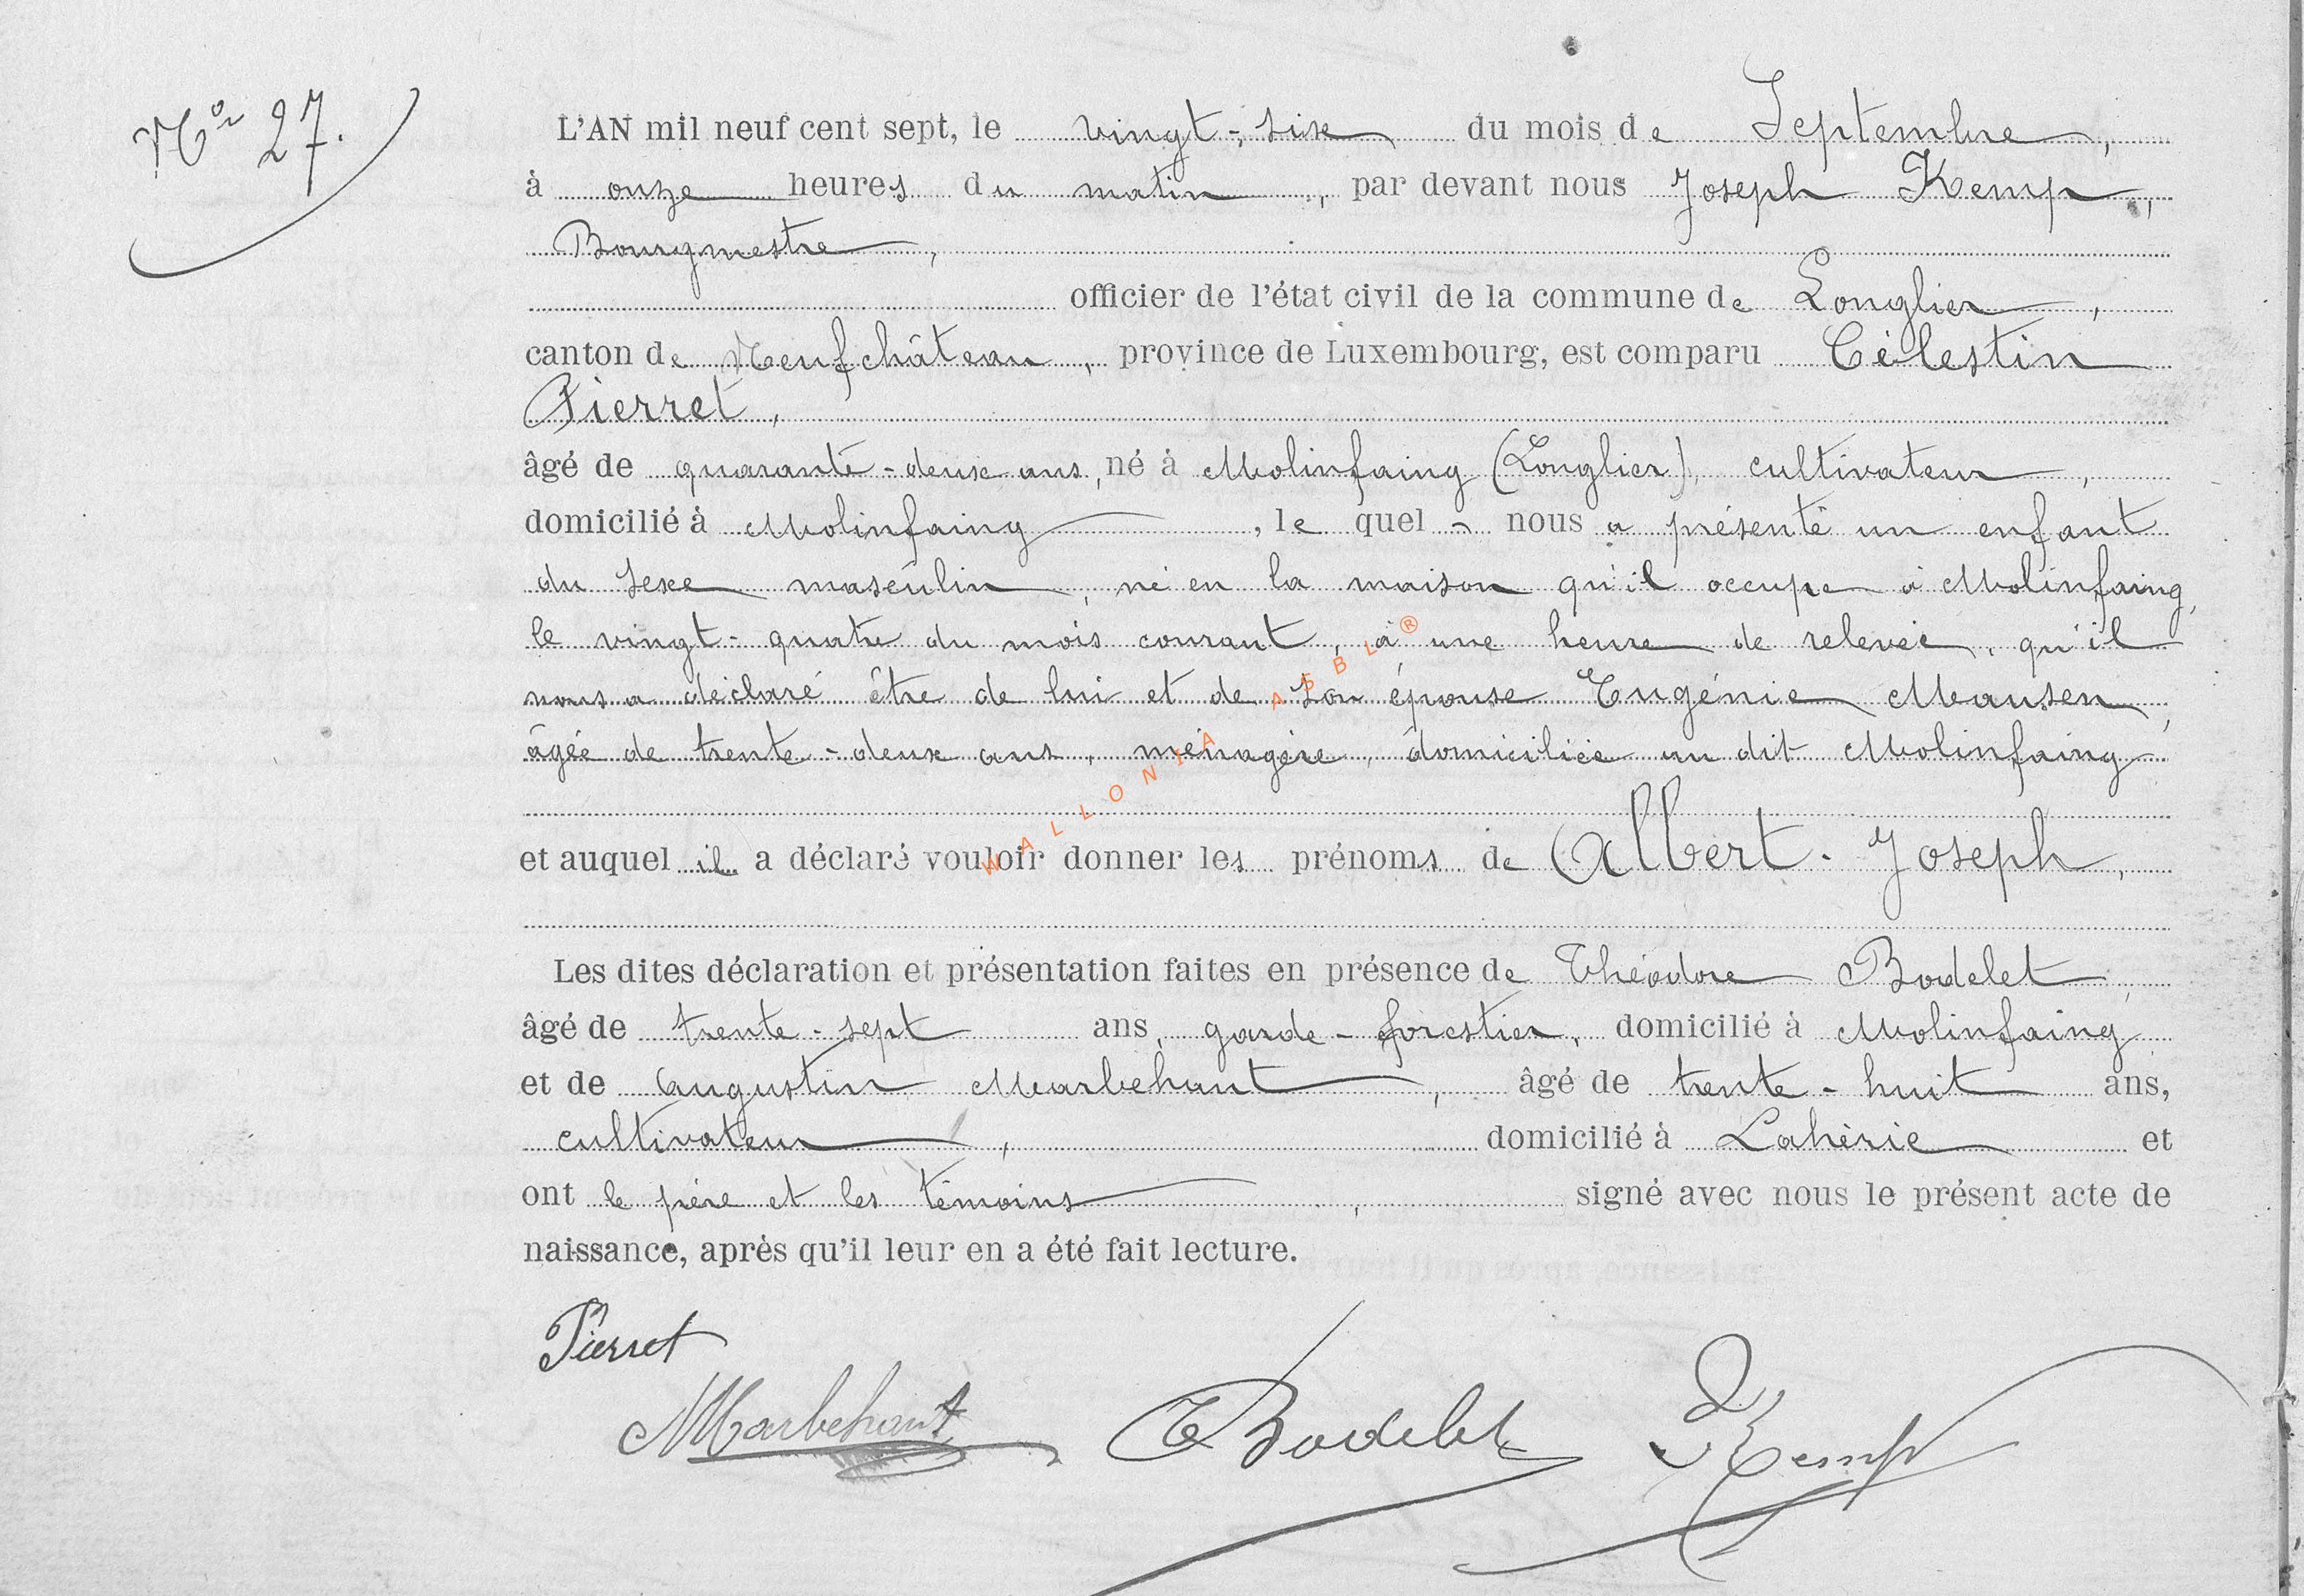 N° 27.
L'AN mil neuf cent sept, le vingt-six du mois de Septembre,
à onze heures du matin, par devant nous Joseph Kemp,
Bourgmestre,
officier de l'état civil de la commune de Longlier,
canton de Neufchâteau, province de Luxembourg, est comparu Célestin
Pierret,
âgé de quarante-deux ans, né à Molinfaing (Longlier), cultivateur,
domicilié à Molinfaing, le quel nous a présenté un enfant
du sexe masculin, né en la maison qu'il occupe à Molinfaing,
le vingt-quatre du mois courant, à une heure de relevée, qu'il
nous a déclaré être de lui et de son épouse Eugénie Mausen,
âgée de trente-deux ans, ménagère, domiciliée au dit Molinfaing
et auquel il a déclaré vouloir donner les prénoms de Albert-Joseph,
Les dites déclaration et présentation faites en présence de Théodore Bodelet,
âgé de trente-sept ans, garde-forestier, domicilié à Molinfaing
et de Augustin Marbehant, âgé de trente-huit ans,
cultivateur, domicilié à Lahérie et
ont le père et les témoins, signé avec nous le présent acte de
naissance, après qu'il leur en a été fait lecture.
Pierret
Marbehant TBodelet J Kemp
WALLONIA ASBL®